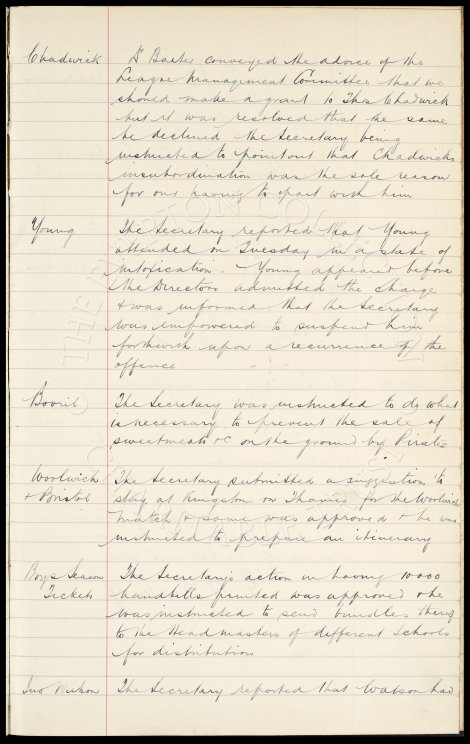 Chadwick Dr Baxter conveyed the advice of the
League Management Committee that we
should make a grant to Thos Chadwick
but it was resolved that the same
be declined the Secretary being
instructed to point out that Chadwicks
insubordination was the sole reason
for our having to part with him
Young The Secretary reported that Young
attended on Tuesday in a state of
intoxication. Young appeared before
the Directors admitted the charge
& was informed that the Secretary
was empowered to suspend him
forthwith upon a recurrence of the
offence
Bovril The Secretary was instructed to do what
is necessary to prevent the sale of
sweetmeats &c on the ground by Pirates
Woolwich The Secretary submitted a suggestion to
& Bristol stay at Kingston on Thames for the Woolwich
match & same was approved & he was
instructed to prepare an itinerary
Boys Season The Secretary's action in having 10000
Tickets handbills printed was approved & he
was instructed to send bundles
to the Head masters of different Schools
for distribution
Jno The Secretary reported that Watson had